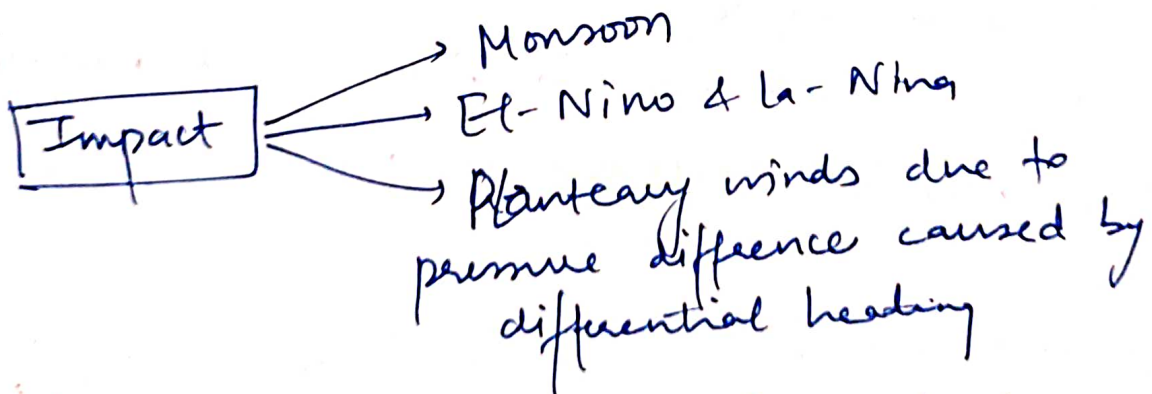 Impact
Monsoon
El-Nino & La-Nina
Planteary winds due to
pressure difference caused by
differential heading